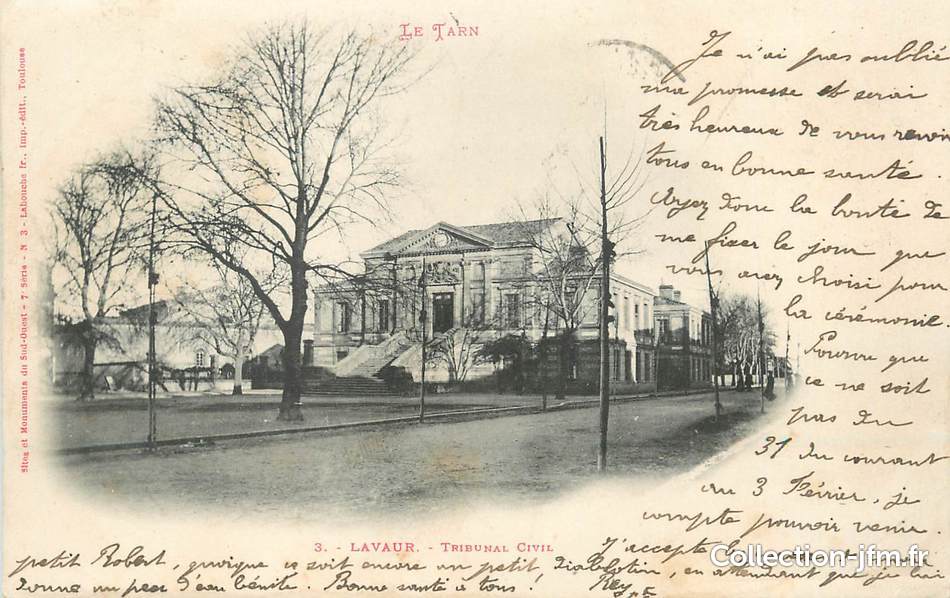 LE TARN
Sites et Monuments du Sud-Ouest - 7e Série - N 3 - Labouche fr., imp.-édit., Toulouse
Je n'ai pas oublié
ma promesse et serai
très heureux de vous revoir
tous en bonne santé.
Ayez donc la bonté de
me fixer le jour que
vous avez choisi pour
la cérémonie
Pourvu que
ce ne soit
pas du
31 du courant
au 3 Février, je
compte pouvoir venir.
J'accepte
petit Robert, quoique ce soit encore un petit Diablotin, en attendant que je lui
donne un peu d'eau bénite. Bonne santé à tous!
3. - LAVAUR. - TRIBUNAL CIVIL
Collection-jfm.fr